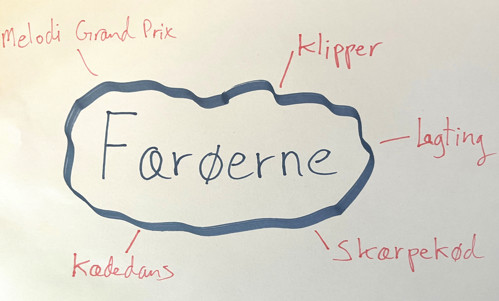 Melodi Grand Prix
Klipper
Lagting
Færøerne
Kædedans
Skærpekød